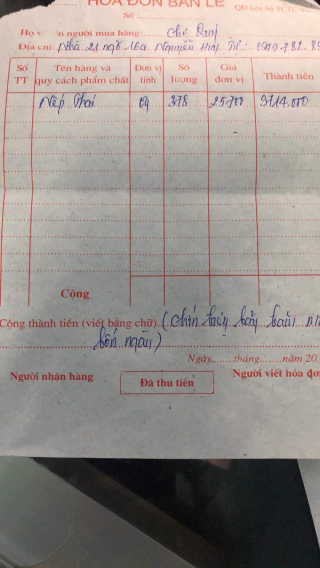 HÓA ĐƠN BÁN LẺ
Số :
Họ v n người mua hàng: Chú Quý
Địa chỉ: Nhà 21 ngõ 16a Nguyễn Huy
Số TT Tên hàng và quy cách phẩm chất Đơn vị tính Số lượng Giá đơn vị Thành tiền
Nếp Thái kg 378 25.700 9714.000
Cộng
Cộng thành tiền (viết bằng chữ): (Chín triệu bảy trăm
bốn ngàn)
Ngày........tháng........năm 20
Người nhận hàng
Đã thu tiền
Người viết hóa đơ